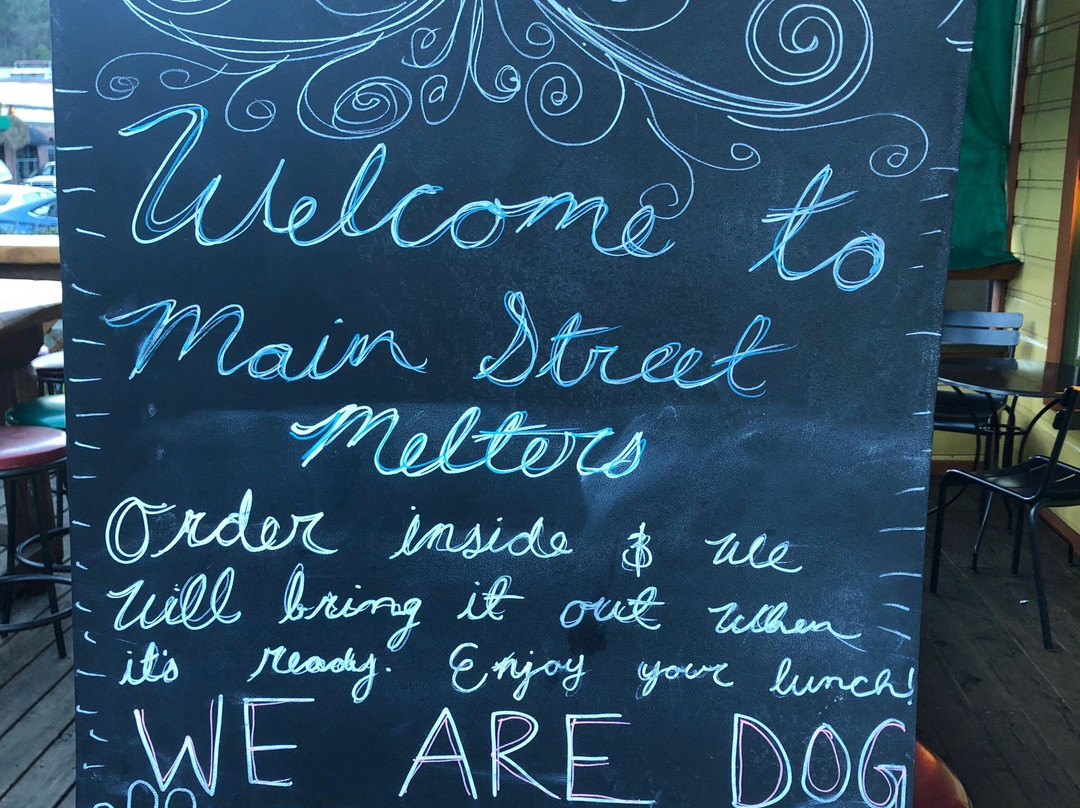 Welcome to
Main Street
Melters
Order inside & We
Will bring it out When
it's ready. Enjoy your lunch!
WE ARE DOG